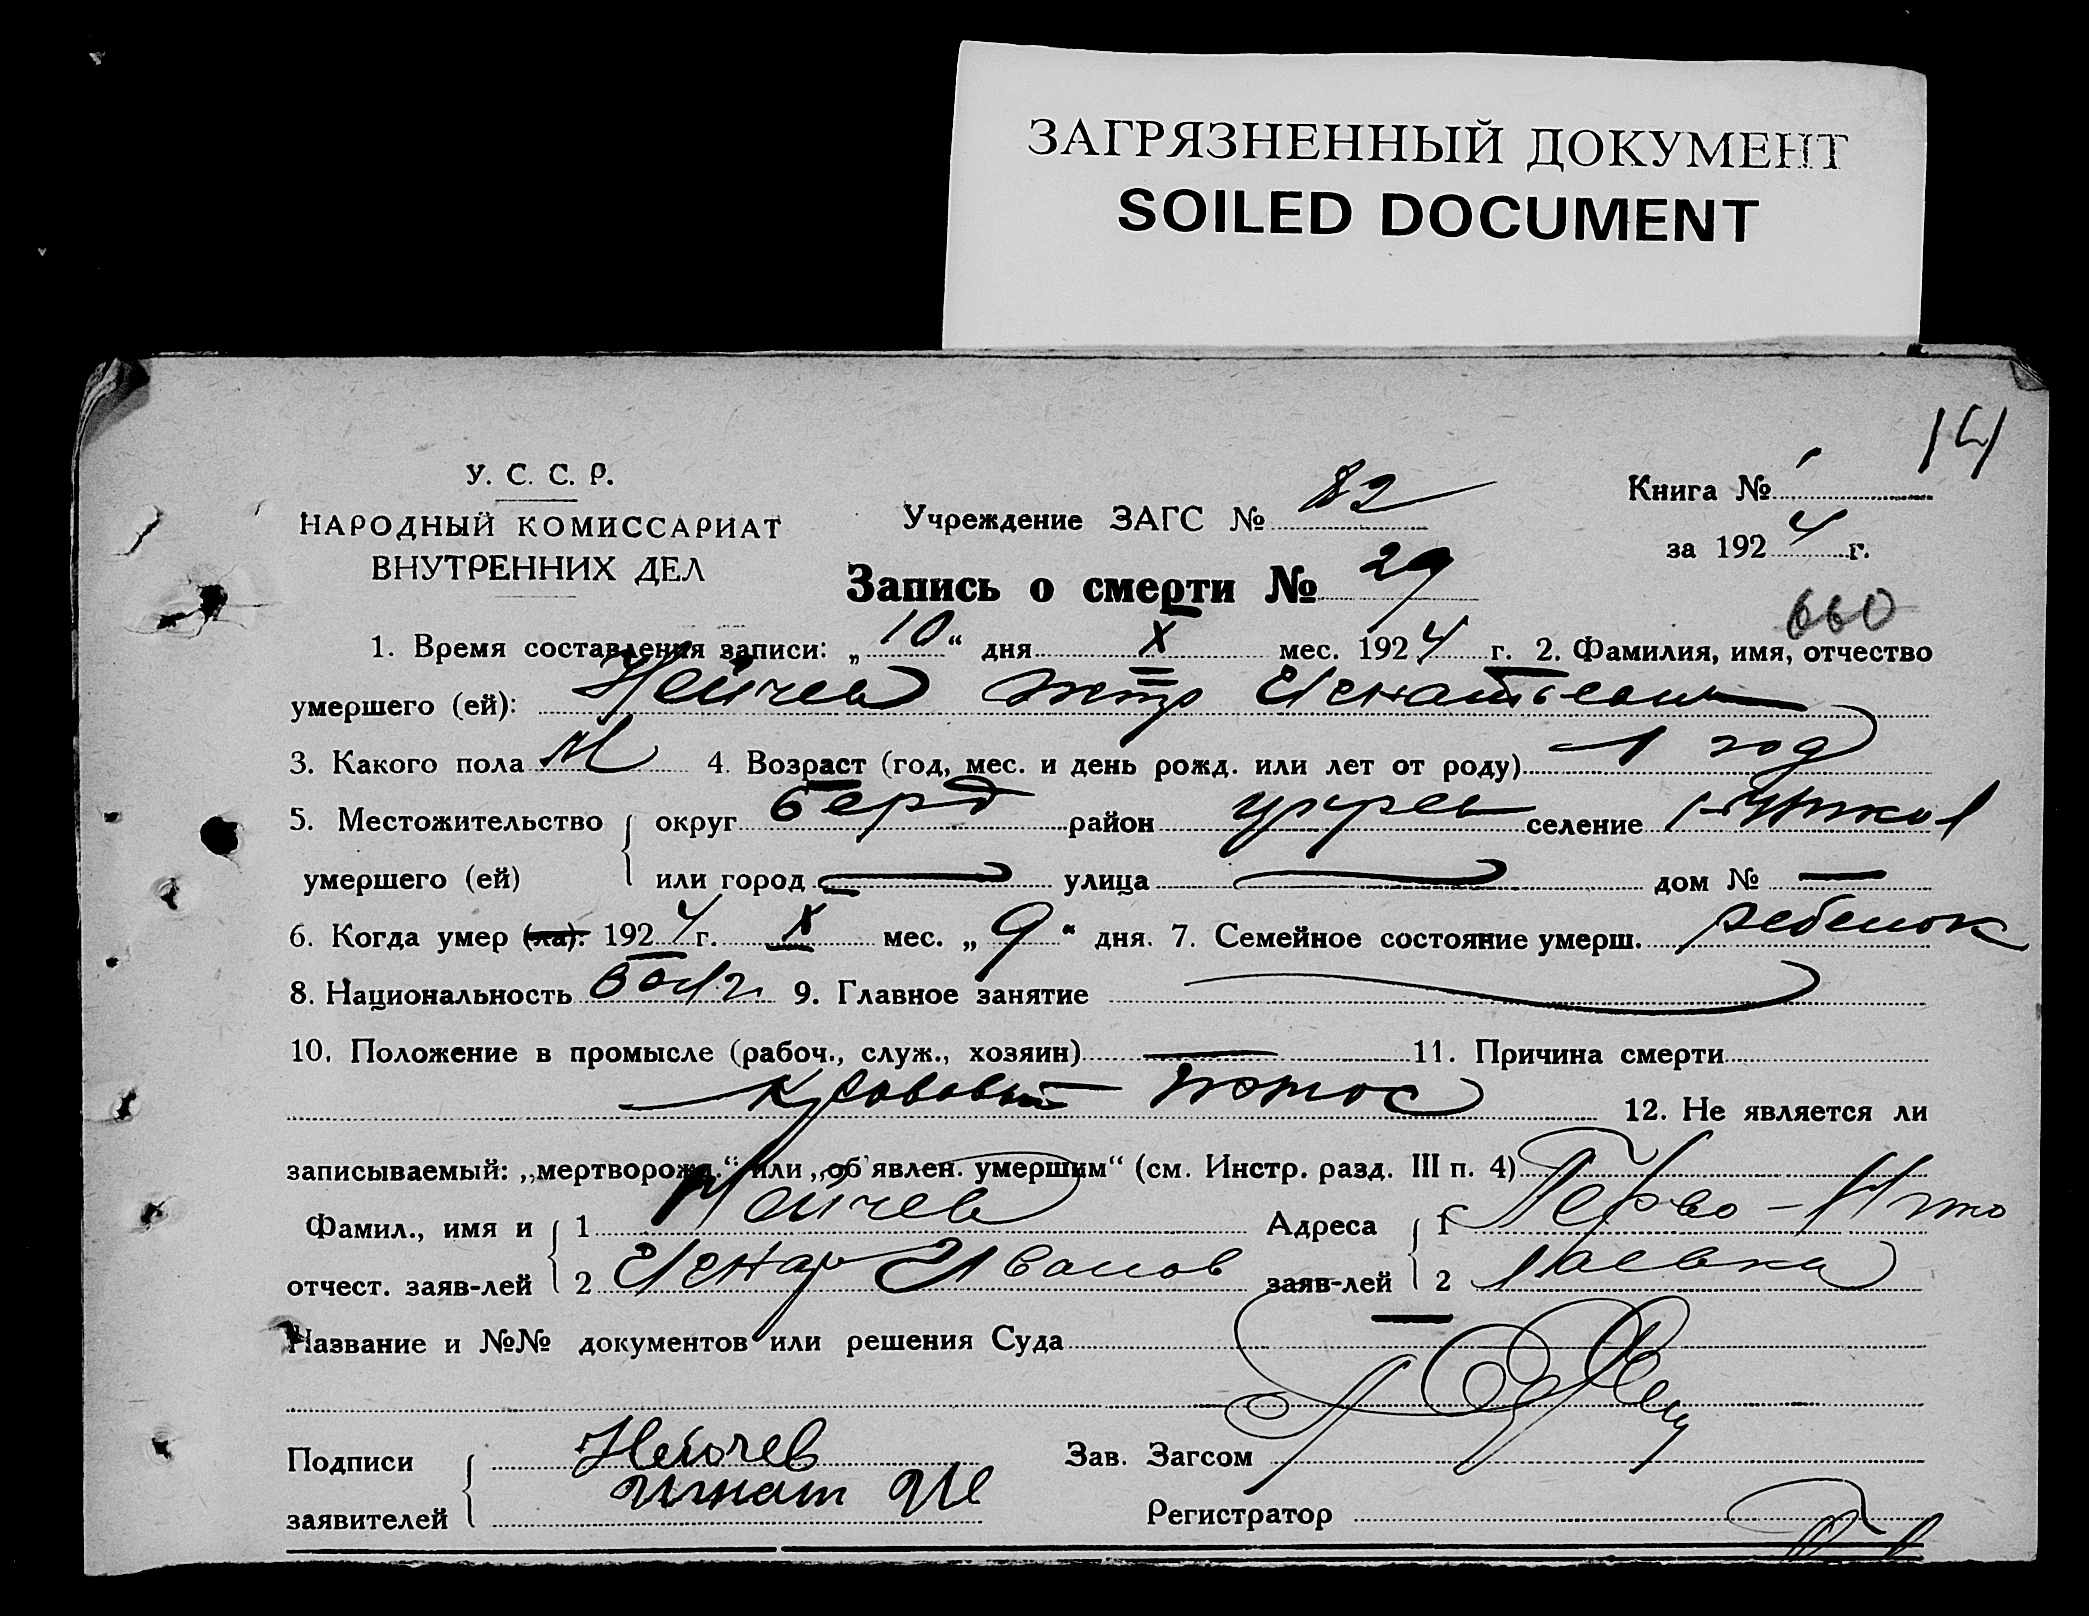 ЗАГРЯЗНЕННЫЙ ДОКУМЕНТ
SOILED DOCUMENT
14
У. С. С. Р.
НАРОДНЫЙ КОМИССАРИАТ
ВНУТРЕННИХ ДЕЛ
Учреждение ЗАГС № 82
Книга № 1
за 1924 г.
Запись о смерти № 29
660
1. Время составления записи: „10“ дня X мес. 1924 г. 2. Фамилия, имя, отчество
умершего (ей): Нейчев Петр
3. Какого пола М 4. Возраст (год, мес. и день рожд. или лет от роду) 1 год
5. Местожительство округ Берд район селение
умершего (ей) или город — улица — дом № —
6. Когда умер (ла): 1924 г. X мес. „9“ дня. 7. Семейное состояние умерш. ребенок
8. Национальность болг. 9. Главное занятие —
10. Положение в промысле (рабоч., служ., хозяин) — 11. Причина смерти
Кровавый понос 12. Не является ли
записываемый: „мертворожд.“ или „об'явлен. умершим“ (см. Инстр. разд. III п. 4)
Фамил., имя и 1 Нейчев Адреса 1
отчест. заяв-лей 2 Иванов заяв-лей 2
Название и №№ документов или решения Суда
Подписи Нейчев Зав. Загсом
Игнат Ив
заявителей Регистратор